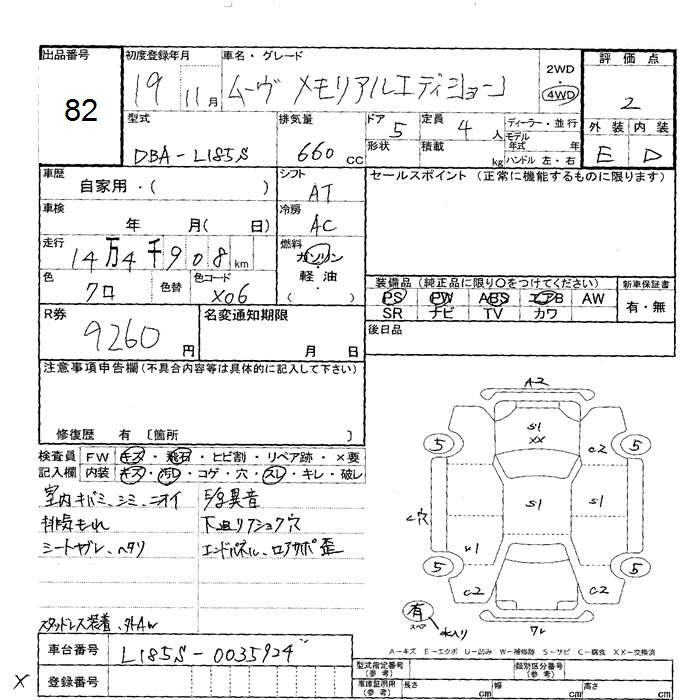 出品番号 初度登録年月 車名・グレード 評価点
82 19 11月 ムーヴ メモリアルエディション 2WD ・ 4WD 2
型式 排気量 ドア 定員 ディーラー・並行 外装 内装
DBA-L185S 660cc 5 4人 モデル年式 年 E D
形状 積載 kg ハンドル 左・右
車歴 シフト セールスポイント (正常に機能するものに限ります)
自家用・( ) AT
車検 冷房
年 月( 日) AC
走行 燃料
14万4千908km ガソリン・軽油 ( )
色 色替 色コード 装備品 (純正品に限り○をつけてください) 新車保証書
クロ X06 PS PW ABS エアB AW 有・無
SR ナビ TV カワ
R券 名変通知期限 後日品
9260円 月 日
注意事項申告欄 (不具合内容等は具体的に記入して下さい)
修復歴 有 〔箇所 〕
検査員 FW キズ・飛石・ヒビ割・リペア跡・×要
記入欄 内装 キズ・汚レ・コゲ・穴・スレ・キレ・破レ
室内キバミ、シミ、ニオイ E/g異音
排気もれ 下廻リアショク穴
シートヤブレ、ヘタリ エンドパネル、ロアサポ歪
スタッドレス装着、外AW
A2
S1
XX
5 C2 5
C穴 S1 S1
U1
5 5
C2 C2
有 スペア 水入り
A-キズ E-エクボ U-凹み W-補修跡 S-サビ C-腐食 XX-交換済
車台番号 L185S-0035924
× 登録番号
型式指定番号(参考) 類別区分番号(参考)
車庫証明用(参考) 長さ cm 幅 cm 高さ cm